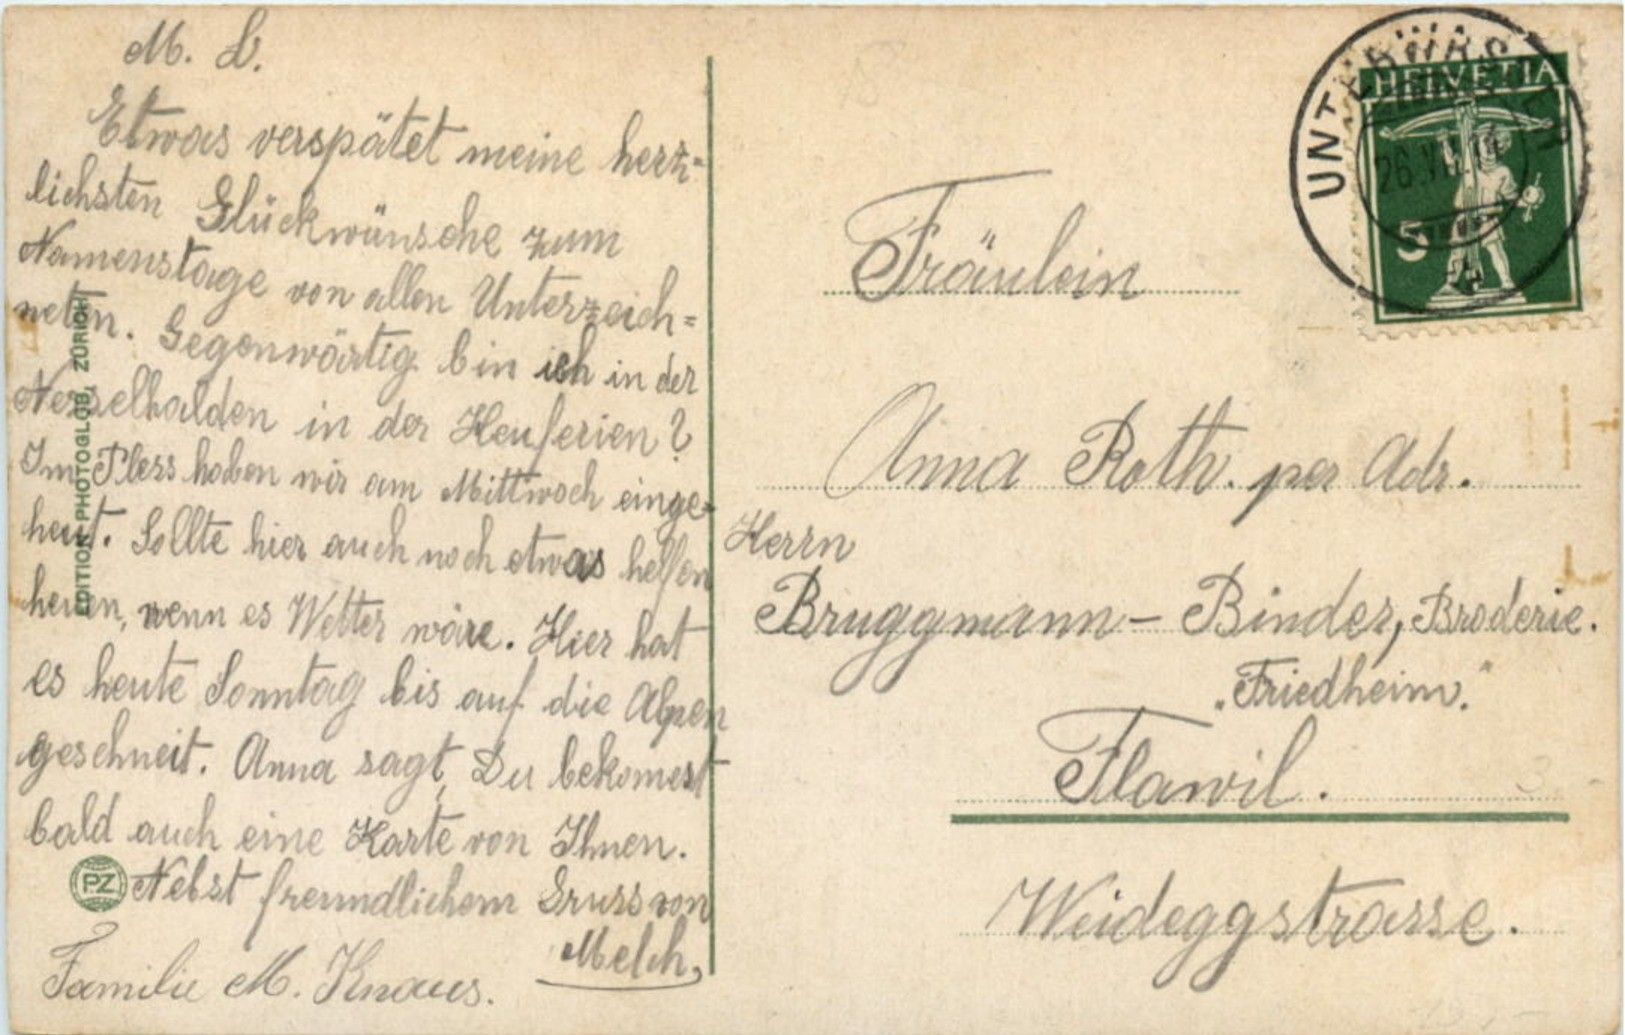 M. L.
Etwas verspätet meine herz-
lichsten Glückwünsche zum
Namenstage von allen Unterzeich=
neten. Gegenwärtig bin ich in der
Nesselhalden in der Heuferien?
Im Pless haben wir am Mittwoch einge-
heut. Sollte hier auch noch etwas helfen
heuen, wenn es Wetter wäre. Hier hat
es heute Sonntag bis auf die Alpen
geschneit. Anna sagt, Du bekomest
bald auch eine Karte von Ihnen.
Nebst freundlichem Gruss von
Melch,
Familie M. Knaus.
EDITION PHOTOGLOB, ZÜRICH
PZ
HELVETIA
5
UNTERWASSER
Fräulein
Anna Roth. per Adr.
Herrn
Bruggmann - Binder, Broderie.
„Friedheim."
Flawil.
Weideggstrasse.